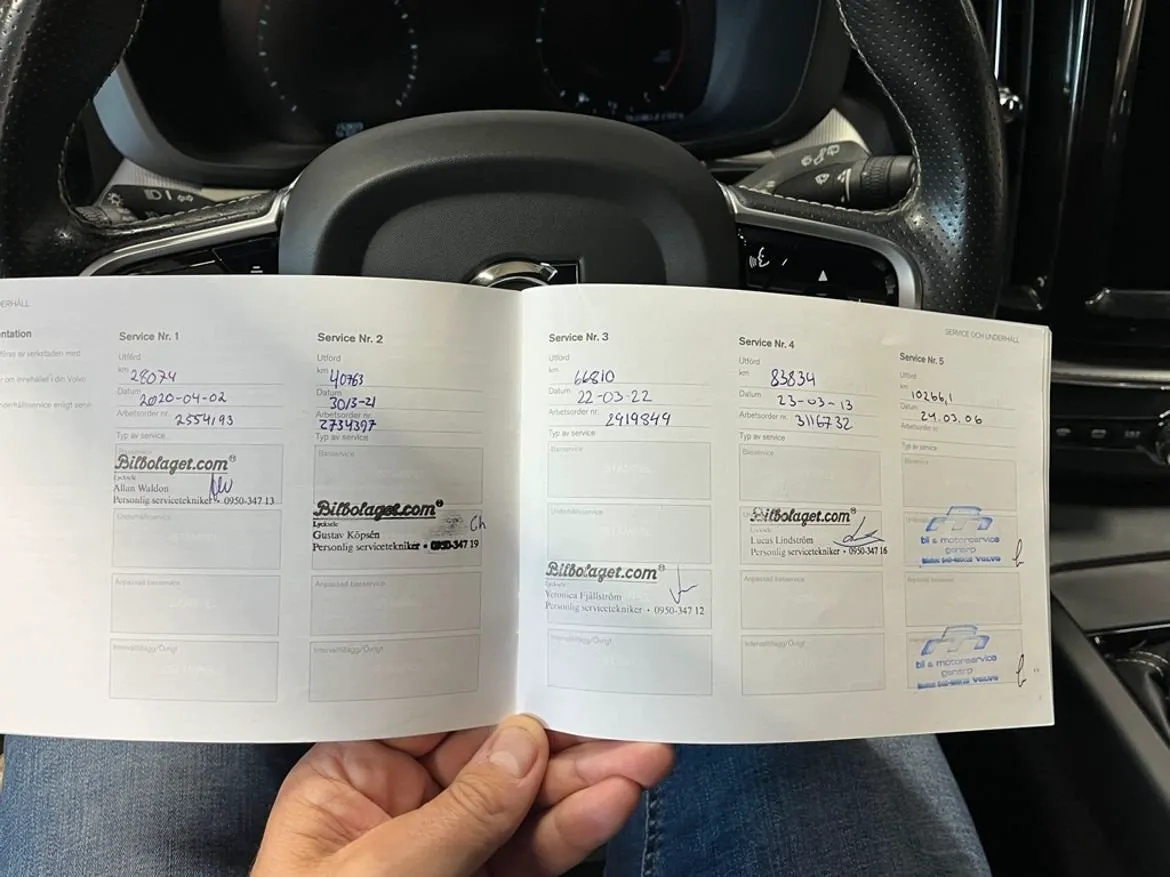 SERVICE OCH UNDERHÅLL
Service Nr. 1
Utförd
km 28074
Datum 2020-04-02
Arbetsorder nr. 2554193
Typ av service
Bilbolaget.com®
Allan Waldon
Personlig servicetekniker • 0950-347 13
Underhållsservice
Anpassad basservice
Intervalltillägg/Övrigt
Service Nr. 2
Utförd
km 40763
Datum 30/3-21
Arbetsorder nr.
2734397
Typ av service
Basservice
Bilbolaget.com®
Lycksele
Gustav Köpsén
Personlig servicetekniker • 0950-347 19
Anpassad basservice
Intervalltillägg/Övrigt
Service Nr. 3
Utförd
km 66810
Datum 22-03-22
Arbetsorder nr. 2919849
Typ av service
Basservice
Underhållsservice
Bilbolaget.com®
Lycksele
Veronica Fjällström
Personlig servicetekniker • 0950-347 12
Intervalltillägg/Övrigt
Service Nr. 4
Utförd
km 83834
Datum 23-03-13
Arbetsorder nr. 3116732
Typ av service
Basservice
Bilbolaget.com®
Lycksele
Lucas Lindström
Personlig servicetekniker • 0950-347 16
Anpassad basservice
Intervalltillägg/Övrigt
Service Nr. 5
Utförd
km 10266,1
Datum 24.03.06
Arbetsorder nr.
Typ av service
Basservice
bil & motorservice
genarp
VOLVO
Anpassad basservice
bil & motorservice
genarp
VOLVO